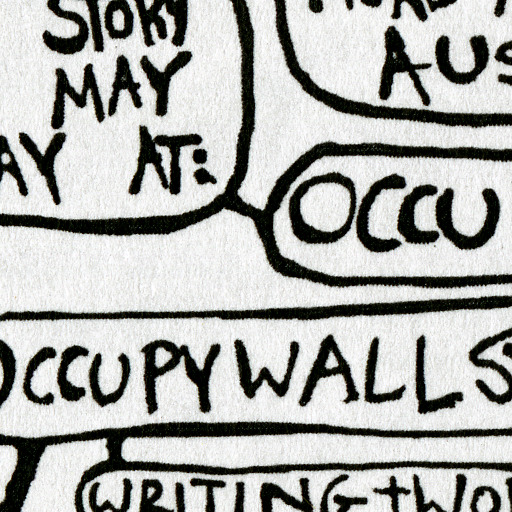 STORY
MAY
AY AT:
AUS
OCCU
OCCUPYWALLS
WRITING+WO